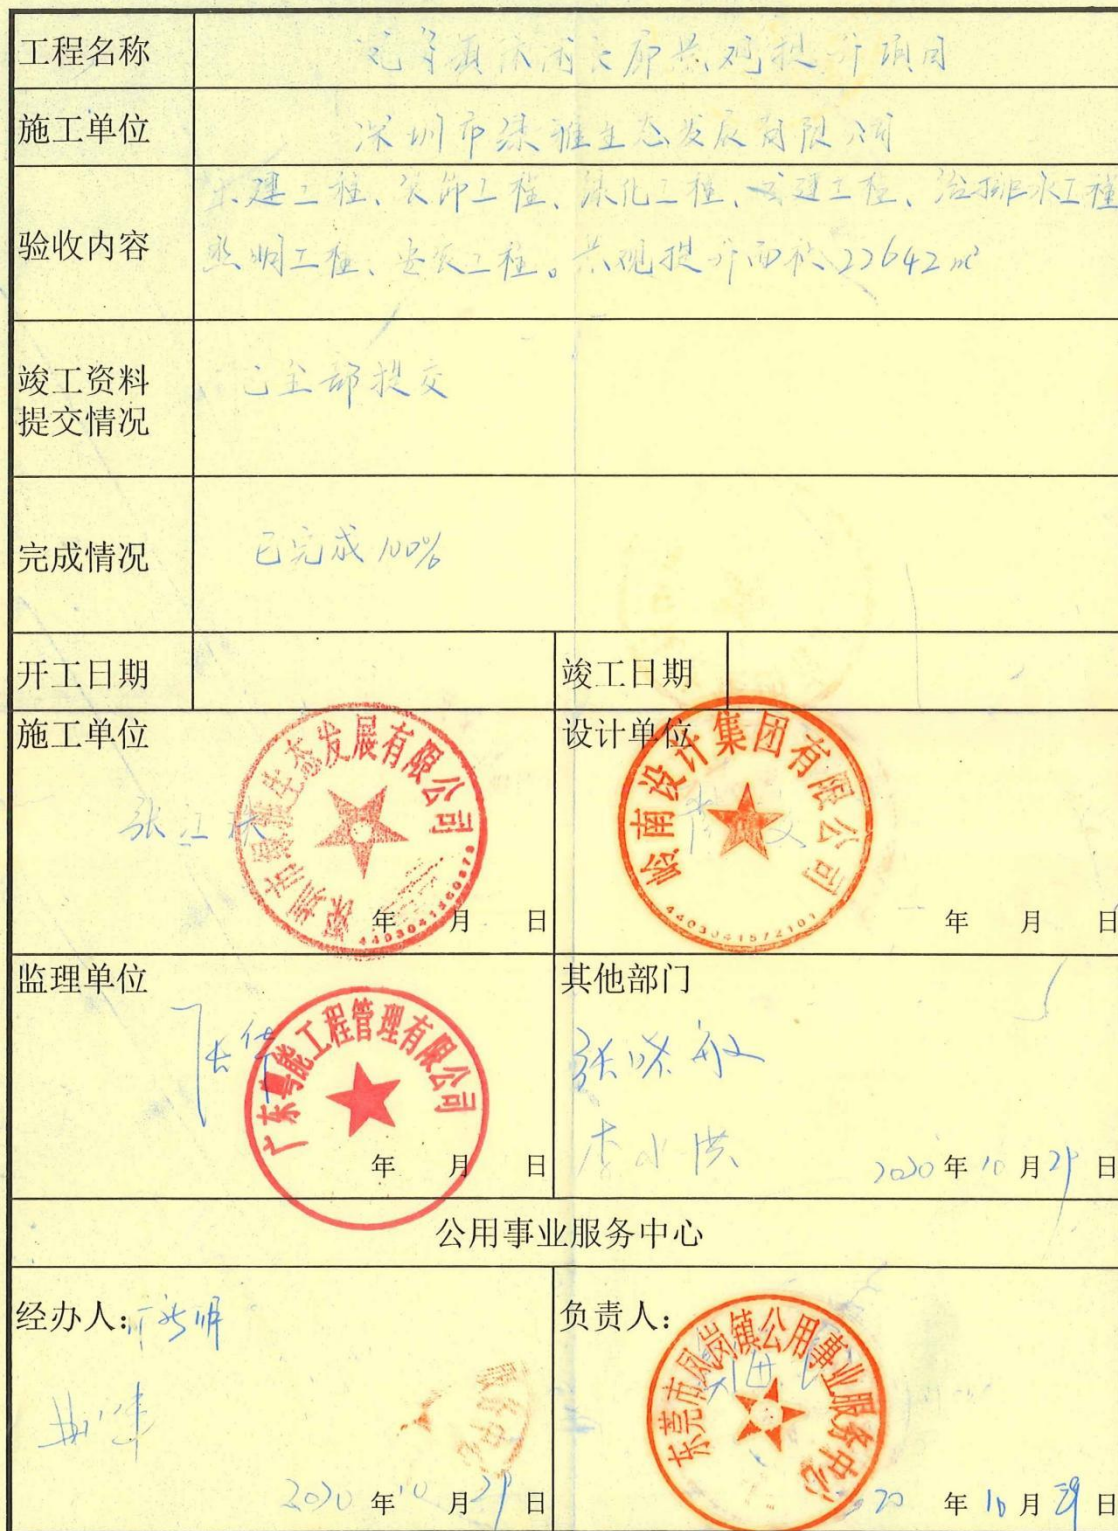 工程名称
景观提升项目
施工单位 深圳市绿雅生态发展有限公司
土建工程、装饰工程、绿化工程、工程、给排水工程
验收内容
照明工程、安装工程。景观提升面积22642m²
竣工资料
提交情况
已全部提交
完成情况 已完成100%
开工日期 竣工日期
施工单位
深圳市生态发展有限公司
年 月 日
设计单位
岭南设计集团有限公司
4403041574101
年 月 日
监理单位
广东粤能工程管理有限公司
年 月 日
其他部门
张晓敏
李小洪
2020年10月29日
公用事业服务中心
经办人:
2020年10月29日
负责人:
东莞市凤岗镇公用事业服务中心
20年10月29日